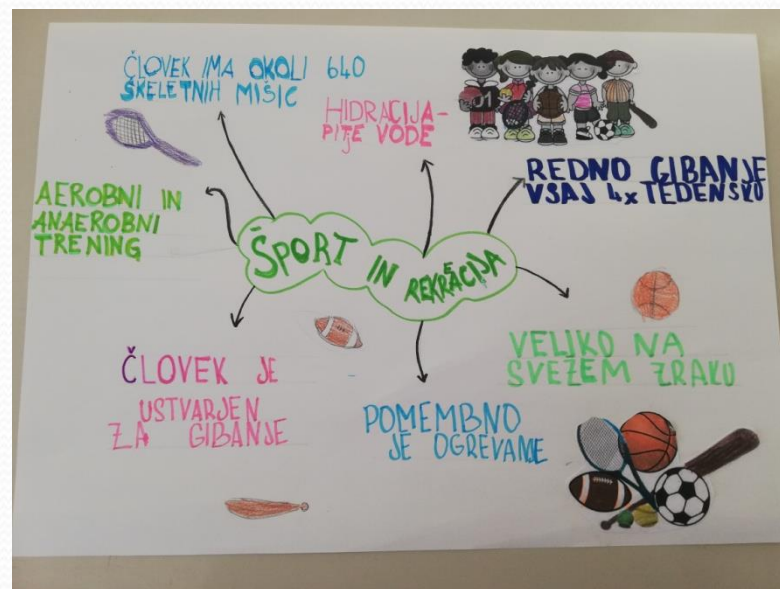 ČLOVEK IMA OKOLI 640
SKELETNIH MIŠIC
HIDRACIJA-
PITJE VODE
REDNO GIBANJE
VSAJ 4x TEDENSKO
AEROBNI IN
ANAEROBNI
TRENING
ŠPORT IN REKREACIJA
ČLOVEK JE
USTVARJEN
ZA GIBANJE
POMEMBNO
JE OGREVANJE
VELIKO NA
SVEŽEM ZRAKU
01